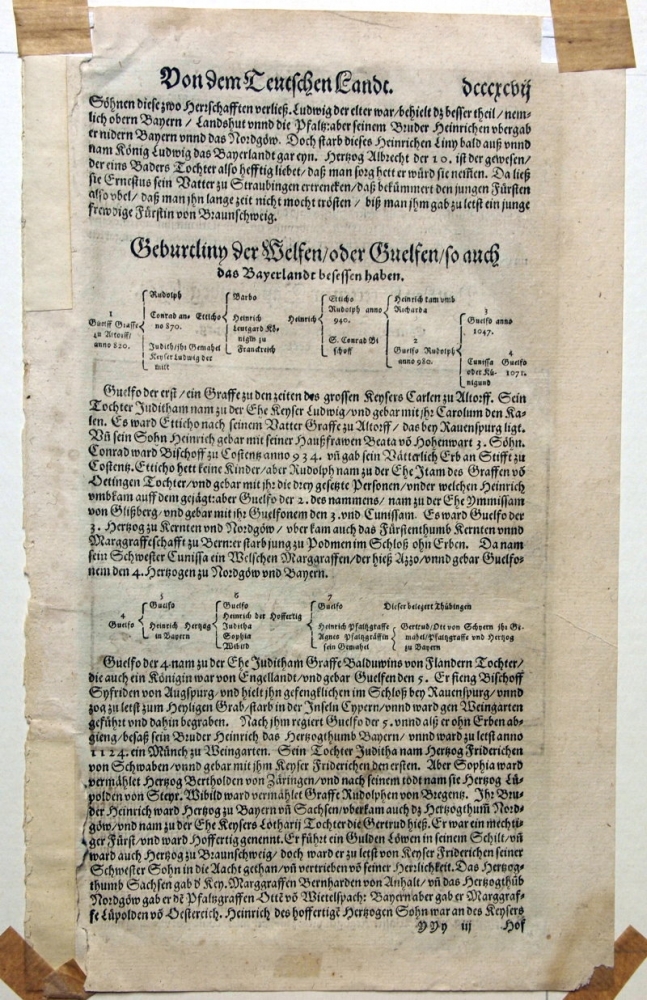 Von dem Teutschen Landt. dcccxcvij
Söhnen diese zwo Herrschafften verließ. Ludwig der elter war/behielt dz besser theil/nem-
lich obern Bayern/Landshut vnnd die Pfaltz: aber seinem Bruder Heinrichen vbergab
er nidern Bayern vnnd das Nordgöw. Doch starb dieses Heinrichen Liny bald auß vnnd
nam König Ludwig das Bayerlandt gar eyn. Hertzog Albrecht der 10. ist der gewesen/
der eins Baders Tochter also hefftig liebet/daß man sorg hett er würd sie nem̃en. Da ließ
sie Ernestus sein Vatter zu Straubingen ertrencken/daß bekümmert den jungen Fürsten
also vbel/daß man jhn lange zeit nicht mocht trösten/biß man jhm gab zu letst ein junge
frewdige Fürstin von Braunschweig.
Geburtliny der Welfen/oder Guelfen/so auch
das Bayerlandt besessen haben.
1
Guelff Graffe
zu Altorff/
anno 820.
Rudolph
Conrad an- Etticho
no 870.
Judith/jhr Gemahel
Keyser Ludwig der
milt
Barbo
Heinrich
Leutgard Kö-
nigin zu
Franckreich
Heinrich
Etticho
Rudolph anno
940.
S. Conrad Bi
schoff
Heinrich kam vmb
Richarda
2
Guelfo Rudolph
anno 980.
3
Guelfo anno
1047.
Cunissa Guelfo
oder Kü- 1071.
nigund
4
Guelfo der erst/ein Graffe zu den zeiten des grossen Keysers Carlen zu Altorff. Sein
Tochter Juditham nam zu der Ehe Keyser Ludwig/vnd gebar mit jhr Carolum den Ka-
len. Es ward Etticho nach seinem Vatter Graffe zu Altorff/das bey Rauenspurg ligt.
Vñ sein Sohn Heinrich gebar mit seiner Haußfrawen Beata võ Hohenwart 3. Söhn.
Conrad ward Bischoff zu Costentz anno 934. vñ gab sein Vätterlich Erb an Stifft zu
Costentz. Etticho hett keine Kinder/aber Rudolph nam zu der Ehe Jtam des Graffen võ
Oetingen Tochter/vnd gebar mit jhr die drey gesetzte Personen/vnder welchen Heinrich
vmbkam auff dem gejägt: aber Guelfo der 2. des nammens/nam zu der Ehe Ymmissam
von Glitzberg/vnd gebar mit jhr Guelfonem den 3. vnd Cunissam. Es ward Guelfo der
3. Hertzog zu Kernten vnd Nordgöw/vberkam auch das Fürstenthumb Kernten vnnd
Marggraffeschafft zu Bern: er starb jung zu Podmen im Schloß ohn Erben. Da nam
sein Schwester Cunissa ein Welschen Marggraffen/der hieß Azzo/vnnd gebar Guelfo-
nem den 4. Hertzogen zu Nordgöw vnd Bayern.
4
Guelfo
5
Guelfo
Heinrich Hertzog
in Bayern
6
Guelfo
Heinrich der Hoffertig
Juditha
Sophia
Wibird
7
Guelfo Dieser belegert Thübingen
Heinrich Pfaltzgraffe
Agnes Pfaltzgräffin
sein Gemahel
Gertrud/Ott von Schyern jhr Ge-
mahel/Pfaltzgraffe vnd Hertzog
zu Bayern
Guelfo der 4. nam zu der Ehe Juditham Graffe Balduwins von Flandern Tochter/
die auch ein Königin war von Engellandt/vnd gebar Guelfen den 5. Er fieng Bischoff
Syfriden von Augspurg/vnd hielt jhn gefengklichen im Schloß bey Rauenspurg/vnnd
zog zu letst zum Heyligen Grab/starb in der Inseln Cypern/vnnd ward gen Weingarten
geführt vnd dahin begraben. Nach jhm regiert Guelfo der 5. vnnd alß er ohn Erben ab-
gieng/besaß sein Bruder Heinrich das Hertzogthumb Bayern/vnnd ward zu letst anno
1124. ein Münch zu Weingarten. Sein Tochter Juditha nam Hertzog Friderichen
von Schwaben/vnnd gebar mit jhm Keyser Friderichen den ersten. Aber Sophia ward
vermählet Hertzog Bertholden von Zäringen/vnd nach seinem todt nam sie Hertzog Lü-
polden von Steyr. Wibild ward vermählet Graffe Rudolphen von Bregentz. Jhr Bru-
der Heinrich ward Hertzog zu Bayern vñ Sachsen/vberkam auch dz Hertzogthum̃ Nord-
göw/vnd nam zu der Ehe Keysers Lotharij Tochter die Gertrud hieß. Er war ein mechti-
ger Fürst/vnd ward Hoffertig genennt. Er führt ein Gulden Löwen in seinem Schilt/vñ
ward auch Hertzog zu Braunschweig/doch ward er zu letst von Keyser Friderichen seiner
Schwester Sohn in die Aacht gethan/vñ vertrieben võ seiner Herrlichkeit. Das Hertzog-
thumb Sachsen gab d' Key. Marggraffen Bernharden von Anhalt/vñ das Hertzogthũb
Nordgöw gab er dẽ Pfaltzgraffen Ottẽ võ Wietelspach: Bayern aber gab er Marggraf-
fe Lüpolden võ Oesterreich. Heinrich des hoffertigẽ Hertzogen Sohn war an des Keysers
YYy iij Hof